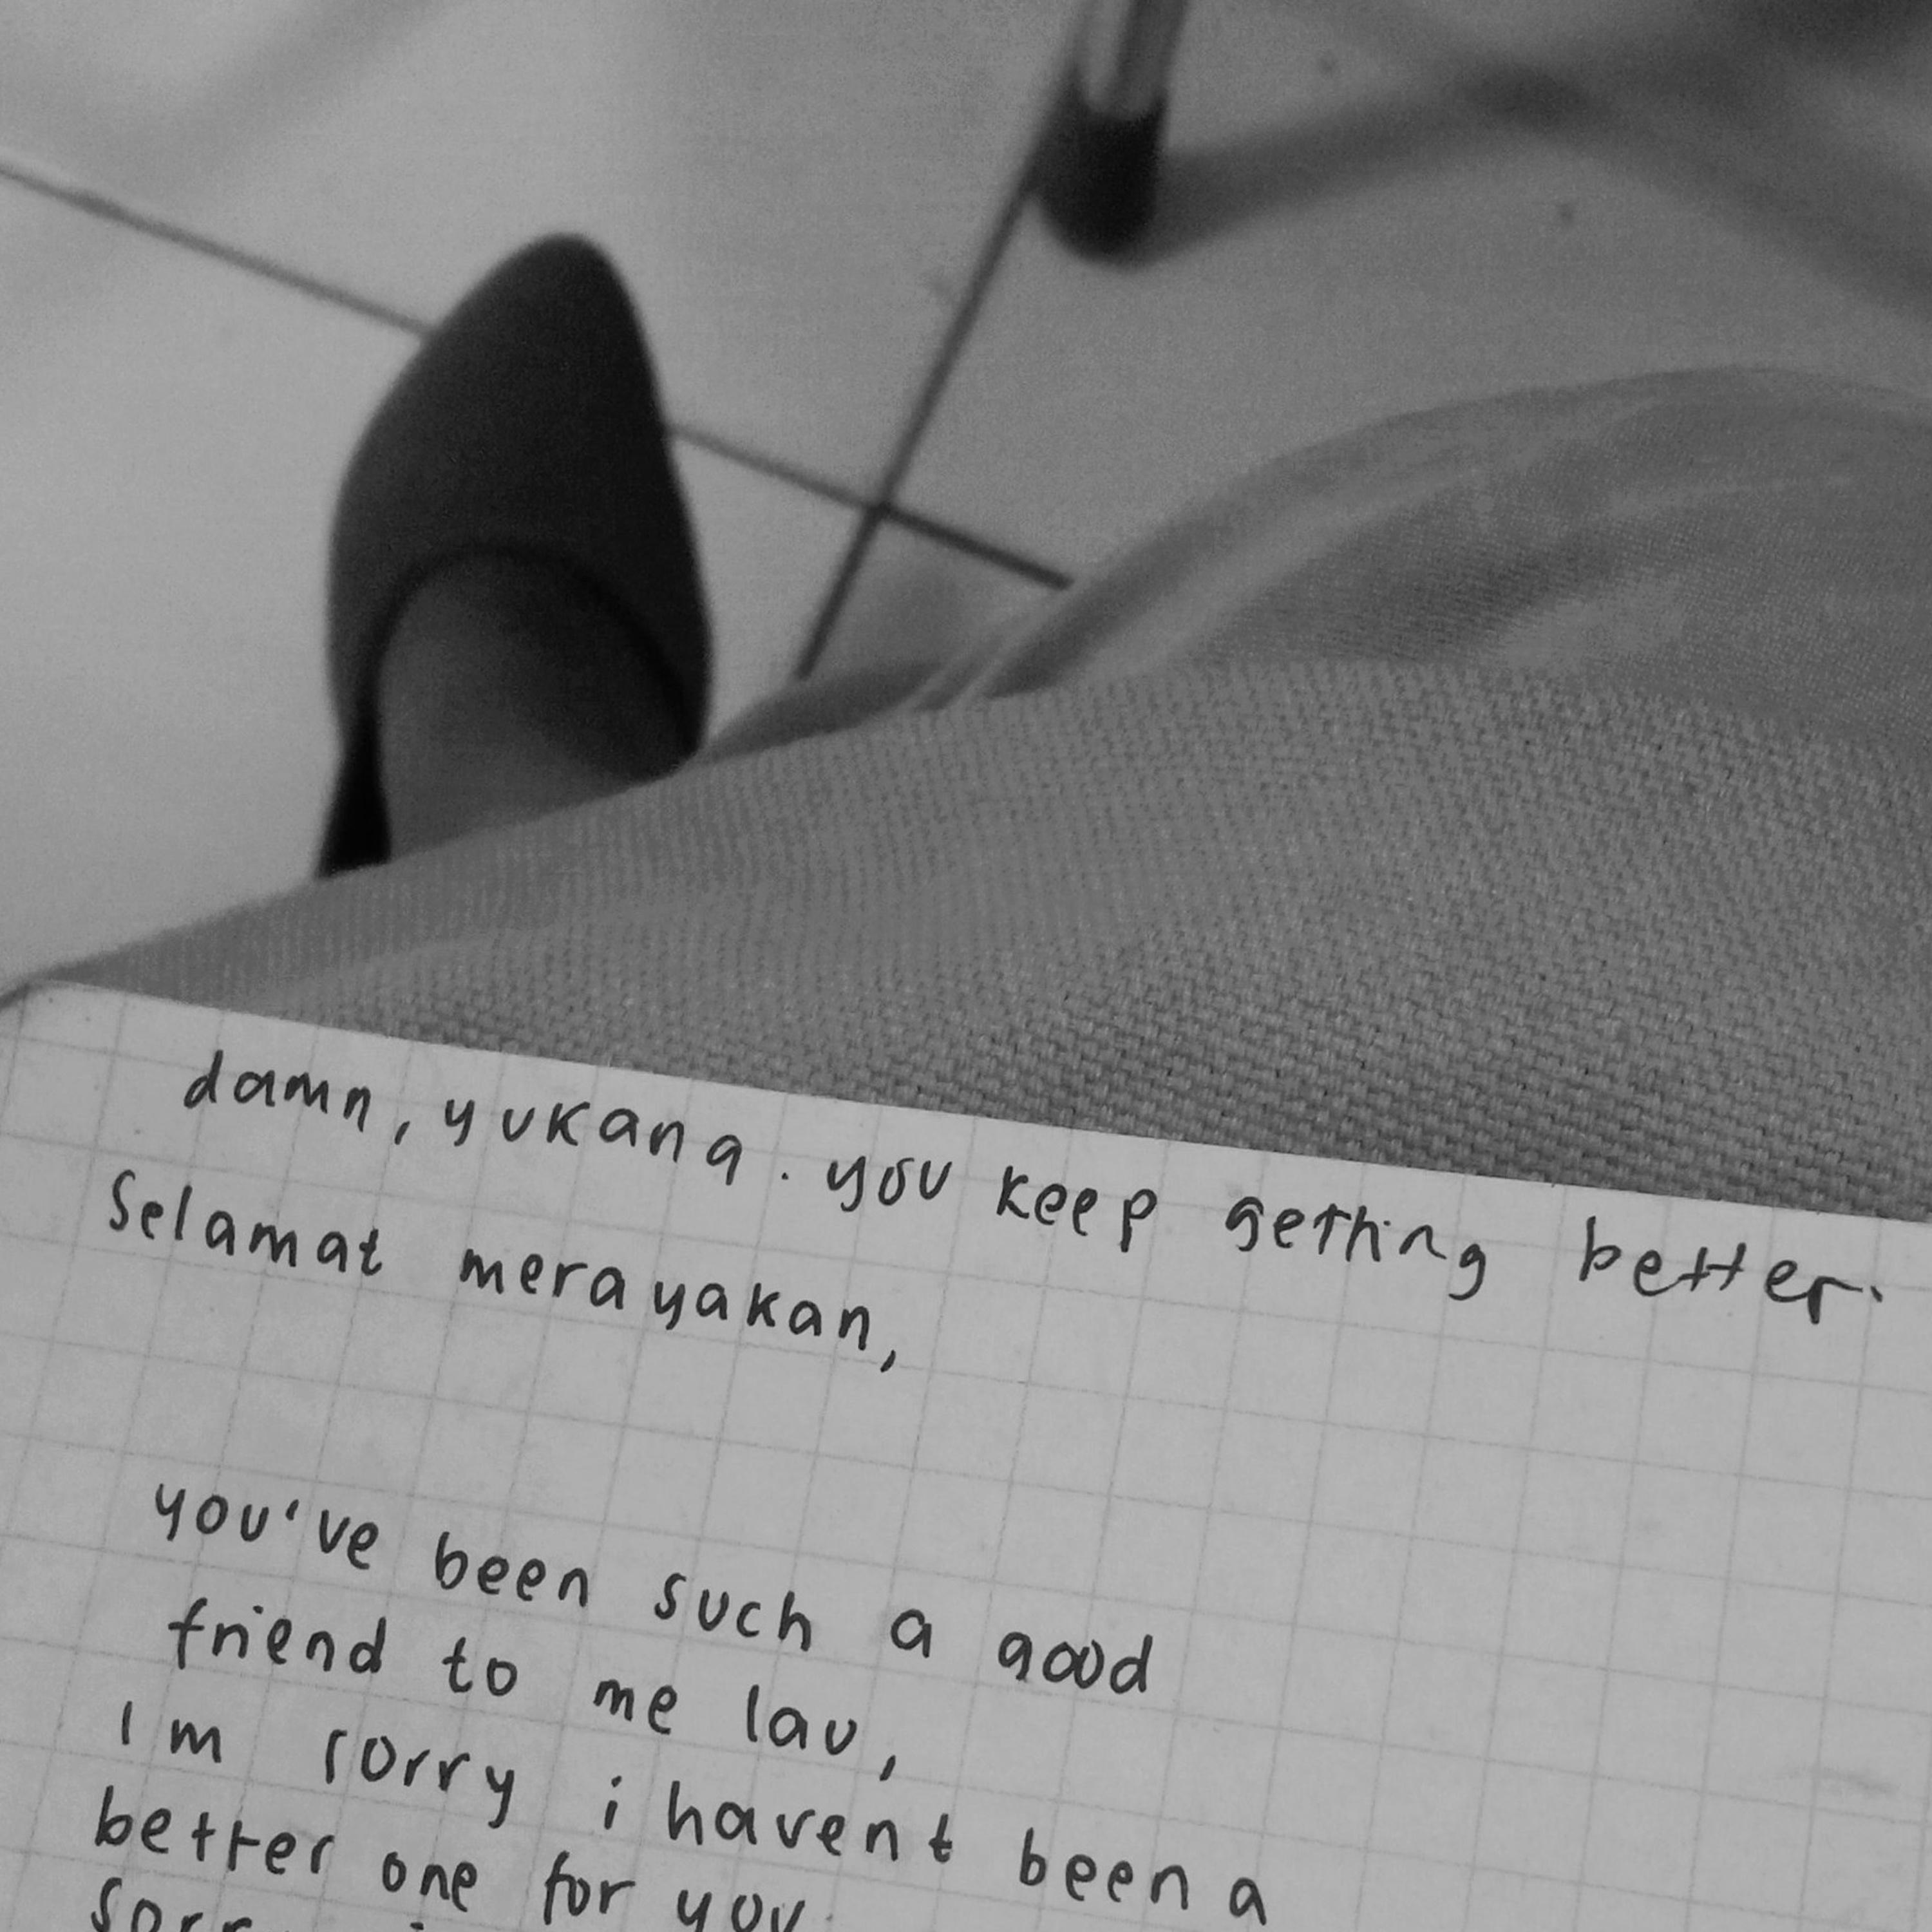 damn, yukana. you keep getting better.
Selamat merayakan,
you've been such a good
friend to me lau,
Im sorry i havent been a
better one for you.